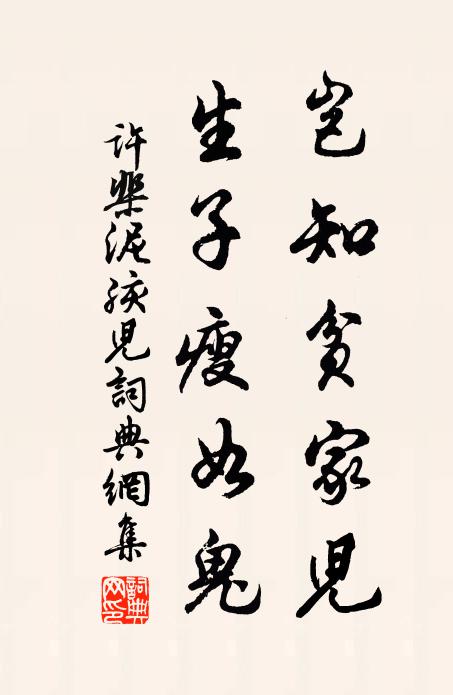 豈知貧家兒
生子瘦如鬼
許棐泥孩兒詞典網集
詞典网印